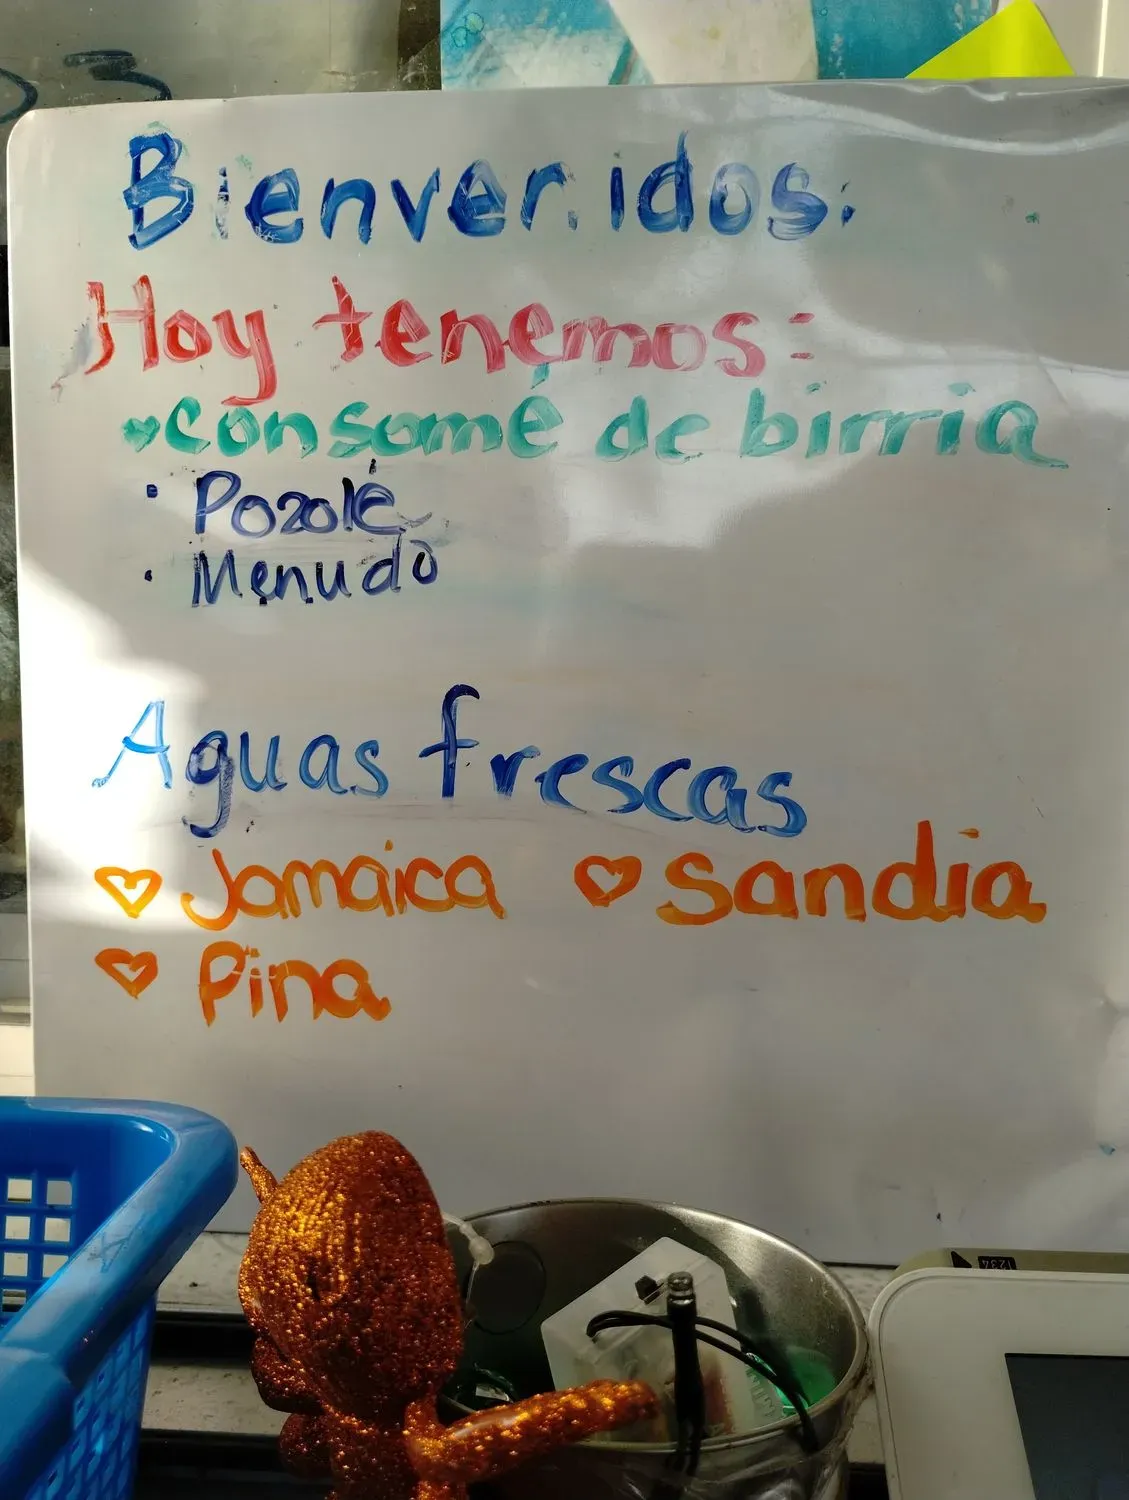 Bienvenidos:
Hoy tenemos:
consomé de birria
• Pozolé
• Menudo
Aguas frescas
♡ Jamaica ♡ Sandia
♡ Pina